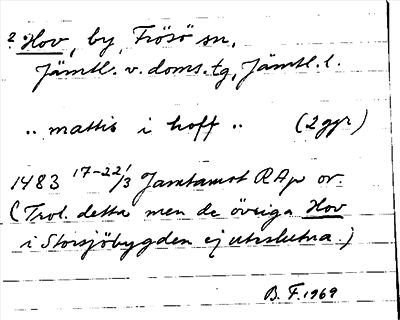 ? Hov, by, Frösö sn.
Jämtl. v. doms. tg, Jämtl. l.
.. mattis i hoff .. (2 ggr)
1483 17-22/3 Jamtamot RAp or.
(Trol. detta men de övriga Hov
i Storsjöbygden ej uteslutna.)
B. F. 1969